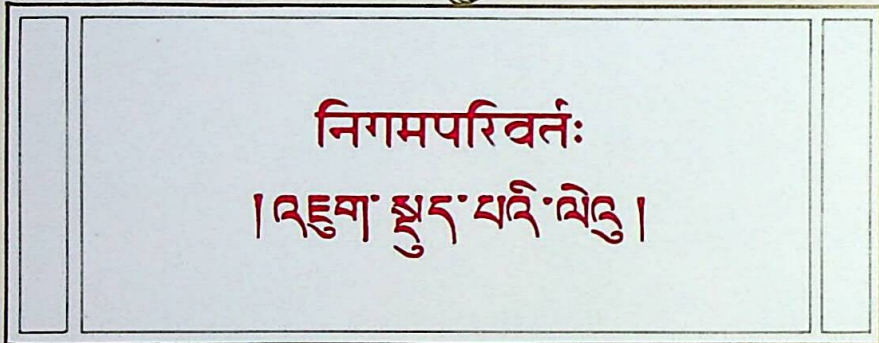 निगमपरिवर्तः
། འཇུག་ སྡུད་ པའི་ ལེའུ །